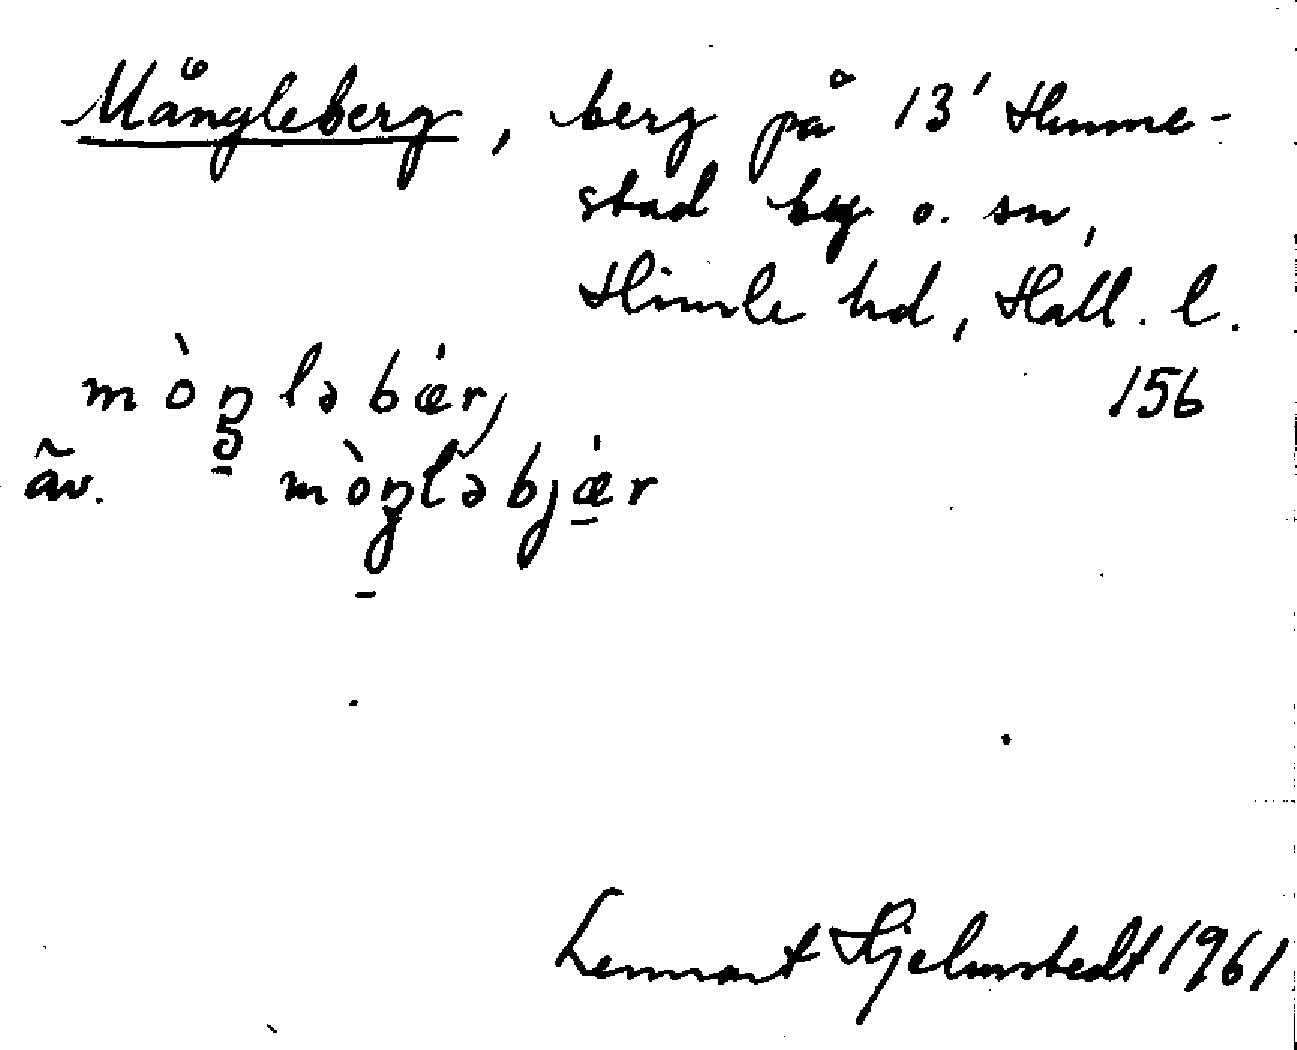 Mångleberg, berg på 13' Himme-
stad by o. sn,
Himle hd, Hall. l.
156
mòŋləbæ̍r,
äv. mòŋləbjæ̍r
Lennart Hjelmstedt 1961